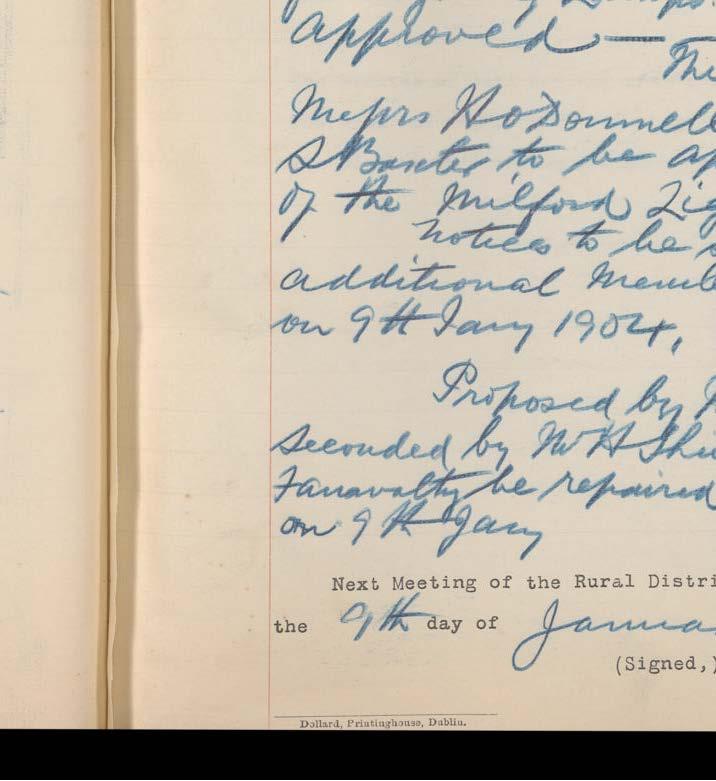 Approved —
The
Messrs H O Donnell
S Baxter to be ap
of the Milford
Notices to be s
additional Memb
on 9th Jany 1904,
Proposed by
seconded by Mr H Shie
Fanavolty be repaired
on 9th Jany
Next Meeting of the Rural Distri
the 9th day of Janua
(Signed,)
Dollard, Printinghouse, Dublin.